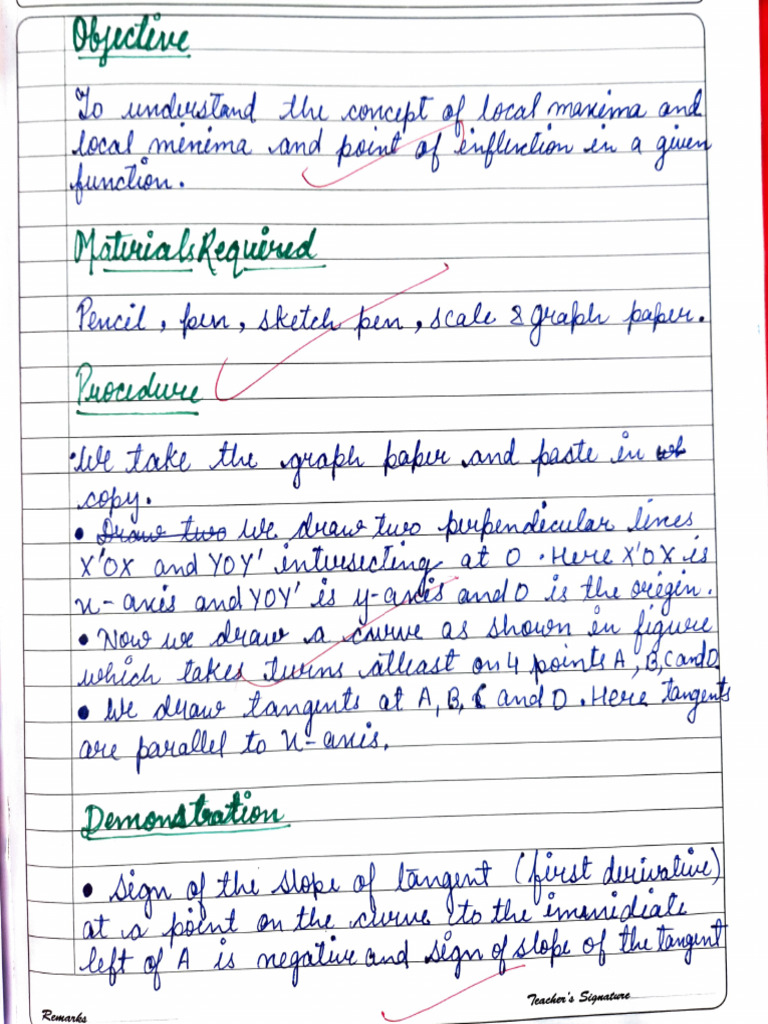 Objective
To understand the concept of local maxima and
local minima and point of inflection in a given
function.
Materials Required
Pencil, pen, sketch pen, scale & graph paper.
Procedure
• We take the graph paper and paste in
copy.
• Draw two We draw two perpendicular lines
X'OX and YOY' intersecting at O. Here X'OX is
x-axis and YOY' is y-axis and O is the origin.
• Now we draw a curve as shown in figure
which takes turns atleast on 4 points A, B, C and D
• We draw tangents at A, B, C and D. Here tangents
are parallel to x-axis.
Demonstration
• Sign of the slope of tangent (first derivative)
at a point on the curve to the immidiate
left of A is negative and sign of slope of the tangent
Teacher's Signature
Remarks